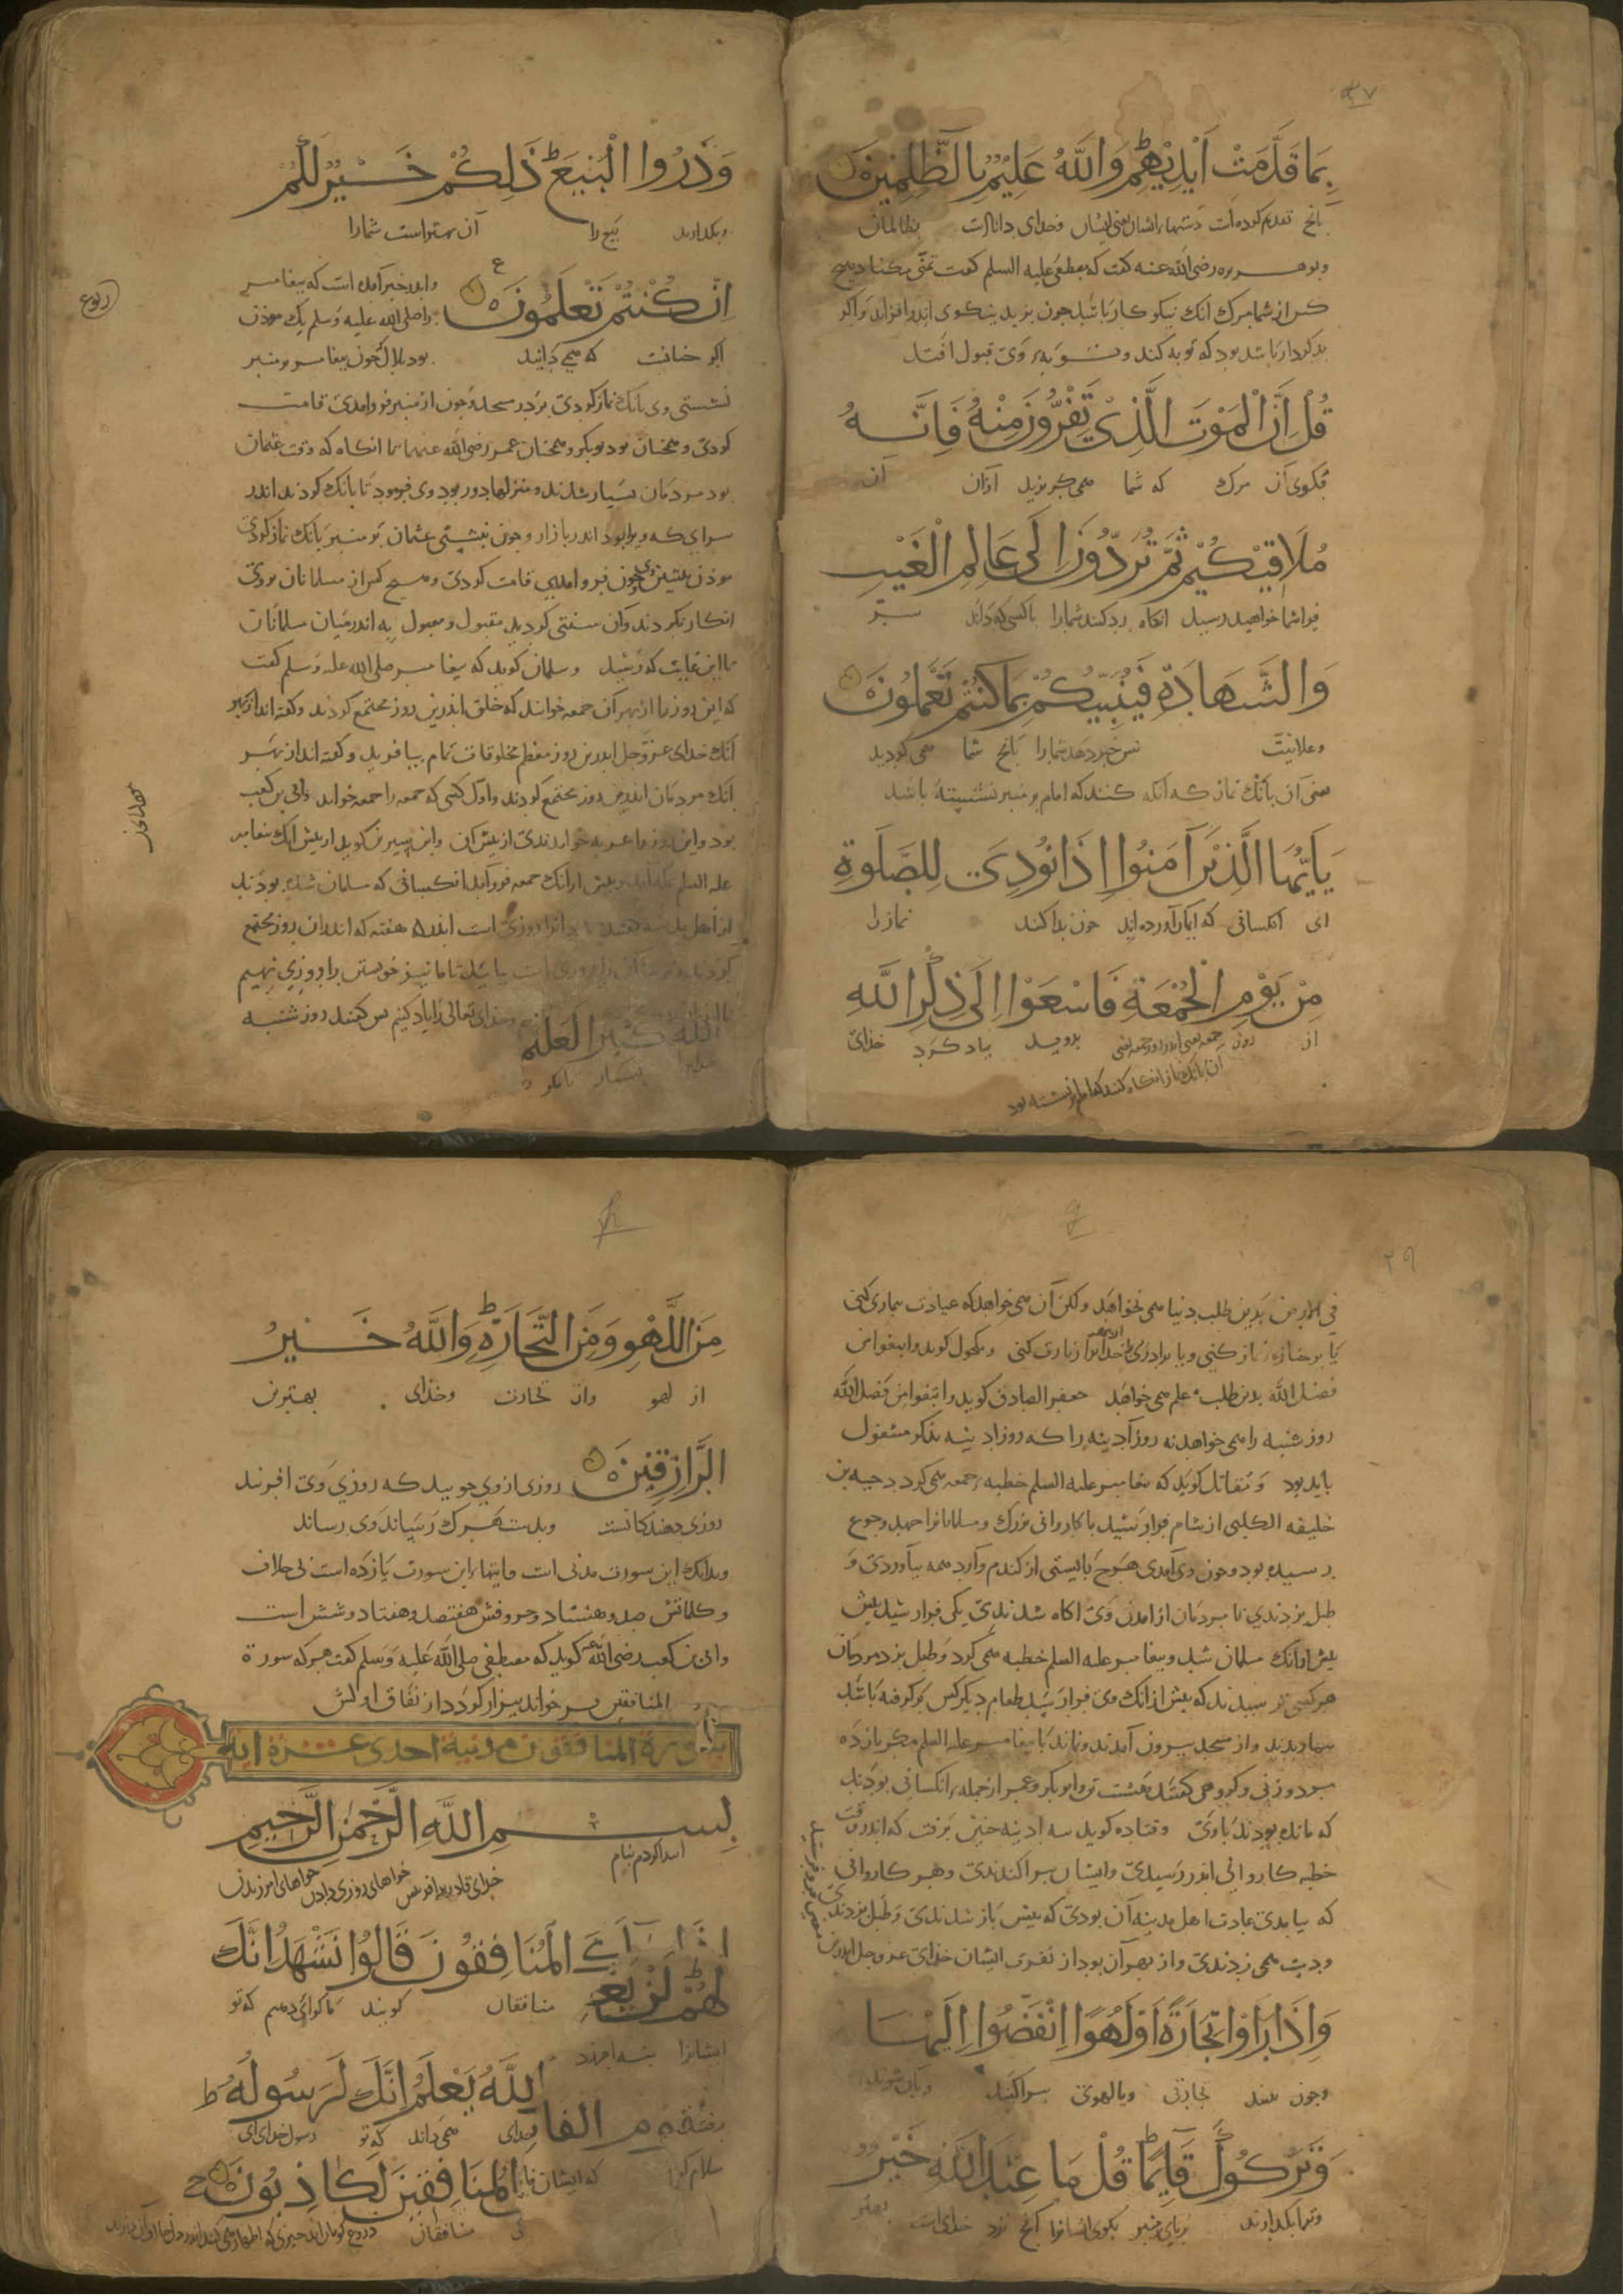 ۳۷
بِمَا قَدَّمَتْ اَيْدِيْهِمْ وَاللَّهُ عَلِيْمٌ بِالظَّالِمِيْنَ
بانچ تقدیم کرده است دستهاء ایشان یعنی ایشان وخدای داناست بظالمان
وبوهریره رضی الله عنه گفت که مصطفی علیه السلم گفت تمنی مکنا دهیچ
کس از شما مرک انک نیکو کار باشد چون بزید نیکوی اندر افزاید واکر
بد کردار باشد بود که توبه کند و توبه وی قبول افتد
قُلْ اِنَّ الْمَوْتَ الَّذِيْ تَفِرُّوْنَ مِنْهُ فَاِنَّهُ
بکوی آن مرک که شما همی کریزید ازان آن
مُلَاقِيْكُمْ ثُمَّ تُرَدُّوْنَ اِلَى عَالِمِ الْغَيْبِ
فراشما خواهد رسید انگاه رد کنند شمارا باکسی که داند سر
وَالشَّهَادَةِ فَيُنَبِّئُكُمْ بِمَا كُنْتُمْ تَعْمَلُوْنَ
وعلانیت پس خبر دهد شمارا بانچ شما همی کردید
یعنی آن بانک نماز که انکه کنند که امام بر منبر نشسته باشد
يَاَيُّهَا الَّذِيْنَ آمَنُوْا اِذَا نُوْدِيَ لِلصَّلٰوةِ
ای انکسانی که ایمان آورده اید چون ندا کنند نماز را
مِنْ يَوْمِ الْجُمُعَةِ فَاسْعَوْا اِلَى ذِكْرِ اللَّهِ
از روز جمعه یعنی اندر روز جمعه یعنی بروید یاد کرد خدای
آن بانک نماز انگاه کنند که امام نشسته بود
وَذَرُوا الْبَيْعَ ذَلِكُمْ خَيْرٌ لَكُمْ
وبکذارید بیع را آن بهتر است شمارا
اِنْ كُنْتُمْ تَعْلَمُوْنَ
واندر خبر آمده است که پیغامبر
را صلی الله علیه وسلم یک موذن
اکر خانت که همی دانید
بود بلال چون پیغامبر بر منبر
نشستی وی بانک نماز کردی بر در مسجد وچون از منبر فرو امدی قامت
کردی وهمچنان بود بوبکر وهمچنان عمر رضی الله عنهما تا انگاه که وقت عثمان
بود مردمان بسیار شدند ومنزلها دور بود وی فرمود تا بانک کردند اندر
سرای که ویرا بود اندر بازار وچون بنشستی عثمان بر منبر بانک نماز کردی
موذن پیشین وی چون فرو امدی قامت کردی وهیچ کس از مسلمانان بروی
انکار نکردند وآن سنتی کردید مقبول ومعمول به اندر میان مسلمانان
تا این غایت که رسید وسلمان کوید که پیغامبر صلی الله علیه وسلم کفت
که این روز را از بهر آن جمعه خوانند که خلق اندرین روز مجتمع کردند وکفته اند از بهر
انک خدای عز وجل اندرین روز معظم مخلوقات تمام بیافرید وکفته اند از بهر
انک مردمان اندرین روز مجتمع کردند واول کسی که جمعه را جمعه خواند وابی بن کعب
بود واین روز را عروبه خواندندی از پیش آن وابن سیرین کوید از پیش انک پیغامبر
علیه السلم بمدینه آید وپیش از انک جمعه فرو آید انکسانی که مسلمان شده بودند
از اهل مدینه کفتند روزی است اندر هفته که اندران روز مجتمع
کردند وترسا آن را روزی است بیایید تا ما نیز خویشتن را روزی نهیم
وخدای تعالی را یاد کنیم پس کفتند روز شنبه
اللَّهَ كَثِيْرًا لَعَلَّكُمْ
خدایرا بسیار تا مکر
ربوع
۲۹
فی الارض بدین طلب دنیا همی نخواهد ولکن آن همی خواهد که عیادت بیماری کنی
یا بر جنازه نماز کنی ویا برادری را از بهر خدا زیارت کنی ومکحول کوید وابتغوا من
فضل الله بدین طلب علم همی خواهد جعفر الصادق کوید وابتغوا من فضل الله
روز شنبه را همی خواهد نه روز آدینه را که روز ادینه بذکر مشغول
باید بود ومقاتل کوید که پیغامبر علیه السلم خطبه جمعه همی کرد دحیه بن
خلیفه الکلبی از شام فراز رسید با کاروانی بزرک ومسلمانانرا جهد وجوع
رسیده بود وچون وی آمدی هرچ بایستی از کندم وآرد همه بیاوردی و
طبل بزدندی تا مردمان از امدن وی اکاه شدندی یکی فراز رسید پیش
پیش از انک مسلمان شد وپیغامبر علیه السلم خطبه همی کرد وطبل بزد مردمان
هر کسی ترسیدند که پیش از انک وی فراز رسد طعام دیکر کس بر کرفته باشد
واز مسجد بیرون آمدند ونماند با پیغامبر علیه السلم مکر یازده
مرد وزنی وکروهی کفتند هشت تن وابوبکر وعمر از جمله انکسانی بودند
که مانده بودند باوی وقتاده کوید سه ادینه چنین برفت که اندر وقت
خطبه کاروانی اندر رسیدی وایشان بپراکندندی وهر کاروانی
که بیامدی عادت اهل مدینه آن بودی که پیش باز شدندی وطبل بزدندی
ودست همی زدندی واز بهر آن بود از تفرق ایشان خدای عز وجل اندرین
وَاِذَا رَاَوْا تِجَارَةً اَوْ لَهْوًا اِنْفَضُّوْا اِلَيْهَا
وچون بینند تجارتی ویا لهوی بپراکنند وبآن شوند
وَتَرَكُوْكَ قَآئِمًا قُلْ مَا عِنْدَ اللَّهِ خَيْرٌ
وترا بکذارند برپای بر منبر بکوی ایشانرا آنچ نزد خدای است بهتر
مِنَ اللَّهْوِ وَمِنَ التِّجَارَةِ وَاللَّهُ خَيْرُ
از لهو واز تجارت وخدای بهترین
الرَّازِقِيْنَ
روزی ازوی جویید که روزی وی افریند
روزی دهندکانست وبدست هرک رسیاند وی رساند
وبدانک این سورت مدنی است وایتهاء این سورت یازده است بی خلاف
وکلماتش صد وهشتاد وحروفش هفتصد وهفتاد وشش است
وابی بن کعب رضی الله عنه کوید که مصطفی صلی الله علیه وسلم کفت هرکه سورة
المنافقین بر خواند بیزار کردد از نفاق
سورة المنافقون مدنية احدى عشرة اية
بِسْمِ اللَّهِ الرَّحْمٰنِ الرَّحِيْمِ
ابتدا کردم بنام
خدای قادر برافرینش خواهای روزی دادن خواهای امرزیدن
اِذَا جَآءَكَ الْمُنَافِقُوْنَ قَالُوْا نَشْهَدُ اِنَّكَ
منافقان کویند ما کواهی دهیم که تو
لَهُمْ لَنْ يَغْفِرَ
ایشانرا بنه امرزد
اللَّهُ يَعْلَمُ اِنَّكَ لَرَسُوْلُهُ
خدای همی داند که تو رسول خدای ای
الْمُنَافِقِيْنَ لَكَاذِبُوْنَ
منافقان